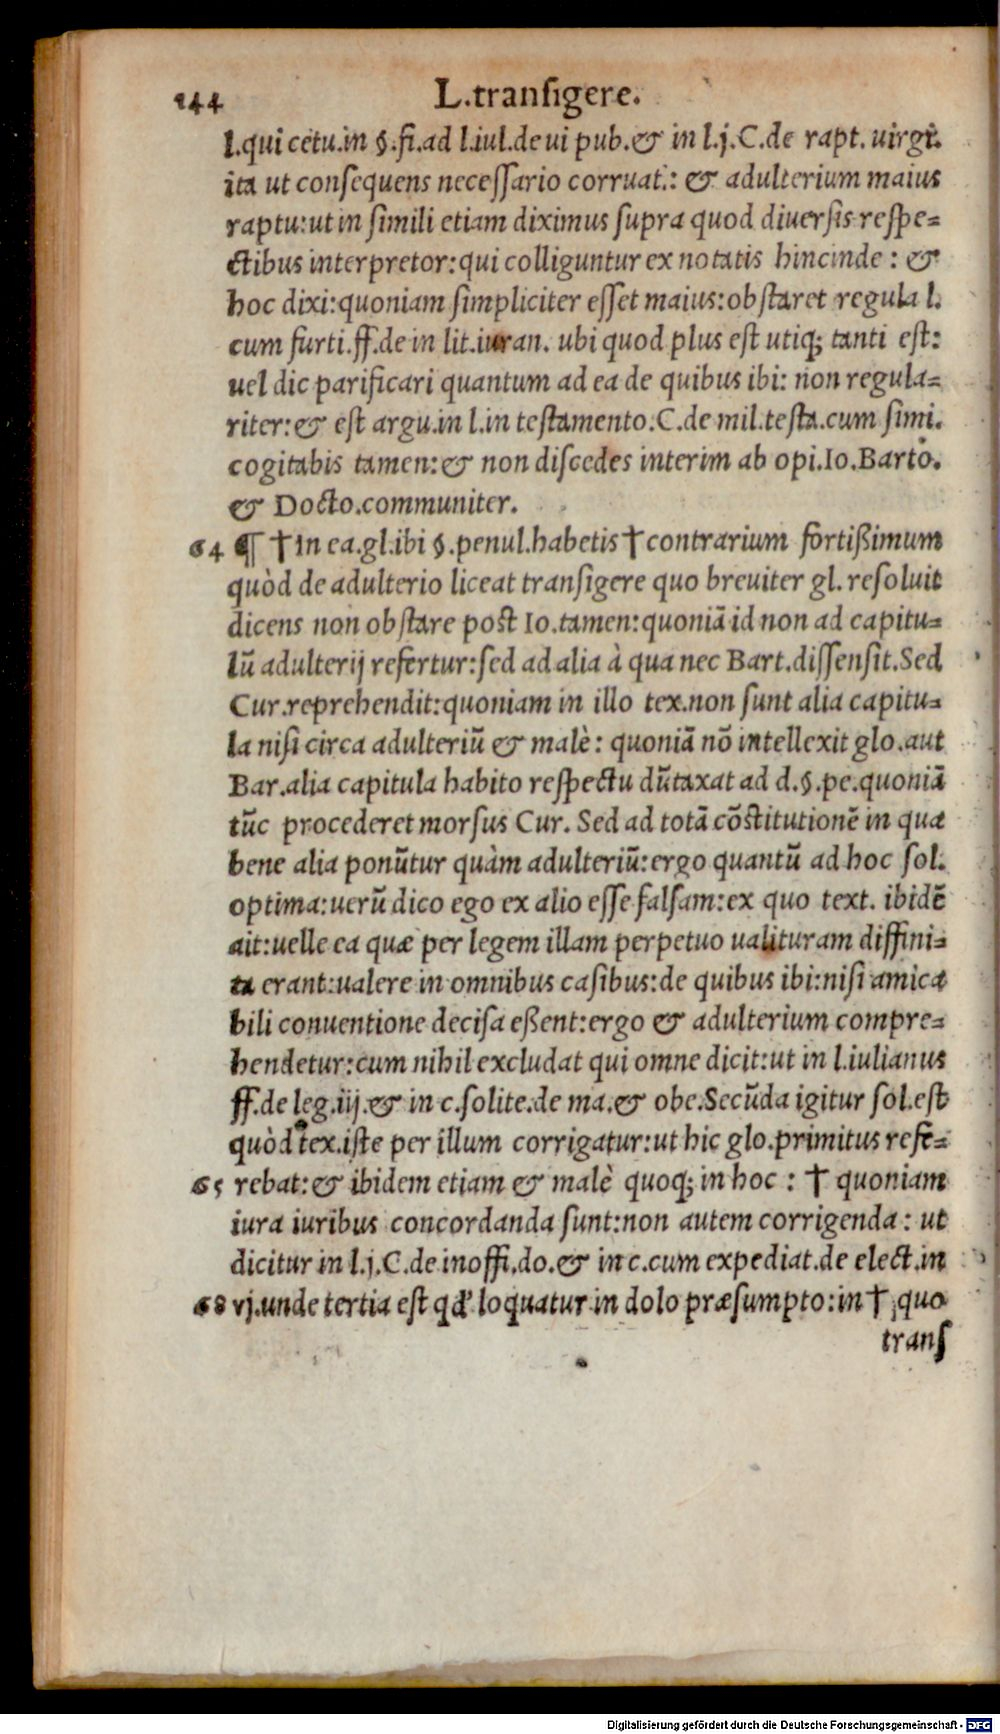 144 L.transigere.
l.qui cetu.in §.fi.ad l.iul.de ui pub.& in l.j.C.de rapt. uirgi.
ita ut consequens necessario corruat.: & adulterium maius
raptu:ut in simili etiam diximus supra quod diuersis respe-
ctibus interpretor:qui colliguntur ex notatis hincinde : &
hoc dixi:quoniam simpliciter esset maius:obstaret regula l.
cum furti.ff.de in lit.iuran. ubi quod plus est utiq; tanti est:
uel dic parificari quantum ad ea de quibus ibi: non regula-
riter:& est argu.in l.in testamento.C.de mil.testa.cum simi.
cogitabis tamen:& non discedes interim ab opi.Io.Barto.
& Docto.communiter.
64 ¶ †In ea.gl.ibi §.penul.habetis†contrarium fortißimum
quòd de adulterio liceat transigere quo breuiter gl. resoluit
dicens non obstare post Io.tamen:quoniā id non ad capitu-
lū adulterij refertur:sed ad alia à qua nec Bart.dissensit.Sed
Cur.reprehendit:quoniam in illo tex.non sunt alia capitu-
la nisi circa adulteriū & malè: quoniā nō intellexit glo.aut
Bar.alia capitula habito respectu dūtaxat ad d.§.pe.quoniā
tūc procederet morsus Cur. Sed ad totā cōstitutionē in qua
bene alia ponūtur quàm adulteriū:ergo quantū ad hoc sol.
optima:uerū dico ego ex alio esse falsam:ex quo text. ibidē
ait:uelle ea quæ per legem illam perpetuo ualituram diffini-
ta erant:ualere in omnibus casibus:de quibus ibi:nisi amica
bili conuentione decisa eßent:ergo & adulterium compre-
hendetur:cum nihil excludat qui omne dicit:ut in l.iulianus
ff.de leg.iij.& in c.solite.de ma.& obe.Secūda igitur sol.est
quòd tex.iste per illum corrigatur:ut hic glo.primitus refe-
65 rebat:& ibidem etiam & malè quoq; in hoc : † quoniam
iura iuribus concordanda sunt:non autem corrigenda : ut
dicitur in l.j.C.de inoffi.do.& in c.cum expediat.de elect.in
68 vj.unde tertia est qđ loquatur in dolo præsumpto:in † quo
trans
Digitalisierung gefördert durch die Deutsche Forschungsgemeinschaft - DFG